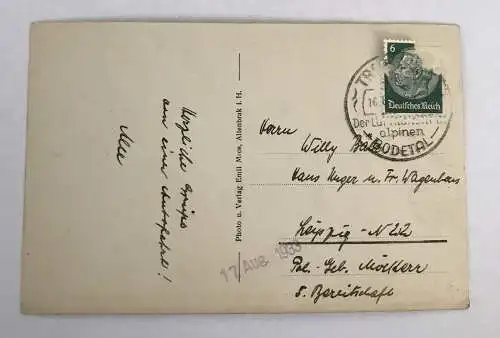 Herzliche Grüße
von einer Autofahrt!
Alle
Photo u. Verlag Emil Mces, Altenbrak i. H.
6
Deutsches Reich
TR
16.
Der Luft
alpinen
BODETAL
Herrn
Willy
Hans Unger u. Fr. Wagenhaus
Leipzig - N 22
Pol.-Geb. Möckern
5. Bereitschaft
17 Aug 1933